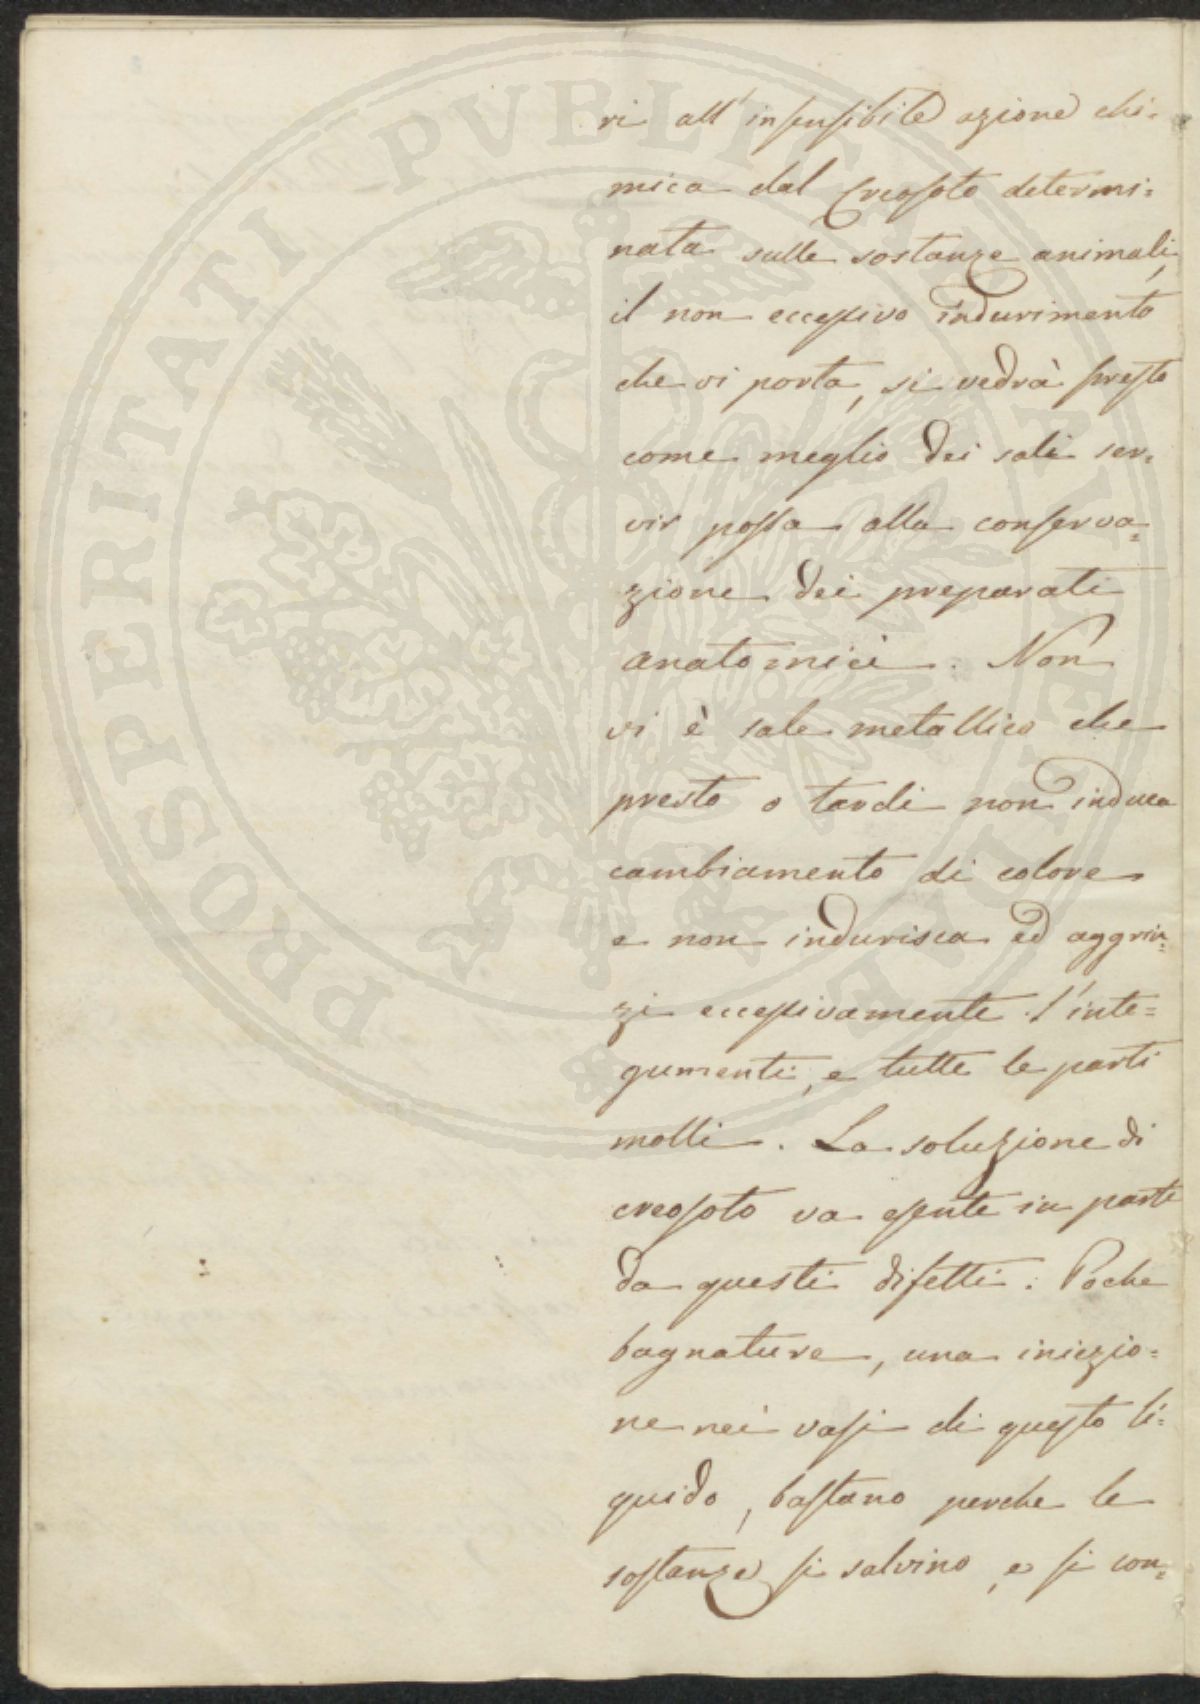 ri all'insensibile azione chi=
mica dal Creosoto determi=
nata sulle sostanze animali,
il non eccessivo indurimento
che vi porta, si vedrà presto
come meglio dei sali ser=
vir possa alla conserva=
zione dei preparati
anatomici. Non
vi è sale metallico che
presto o tardi non induca
cambiamento di colore
e non indurisca ed aggrin=
zi eccessivamente l'inte=
gumenti, e tutte le parti
molli. La soluzione di
creosoto va esente in parte
da questi difetti: Poche
bagnature, una iniezio=
ne nei vasi di questo li=
quido, bastano perche le
sostanze si salvino, e si con=
PROSPERITATI PUBLICAE